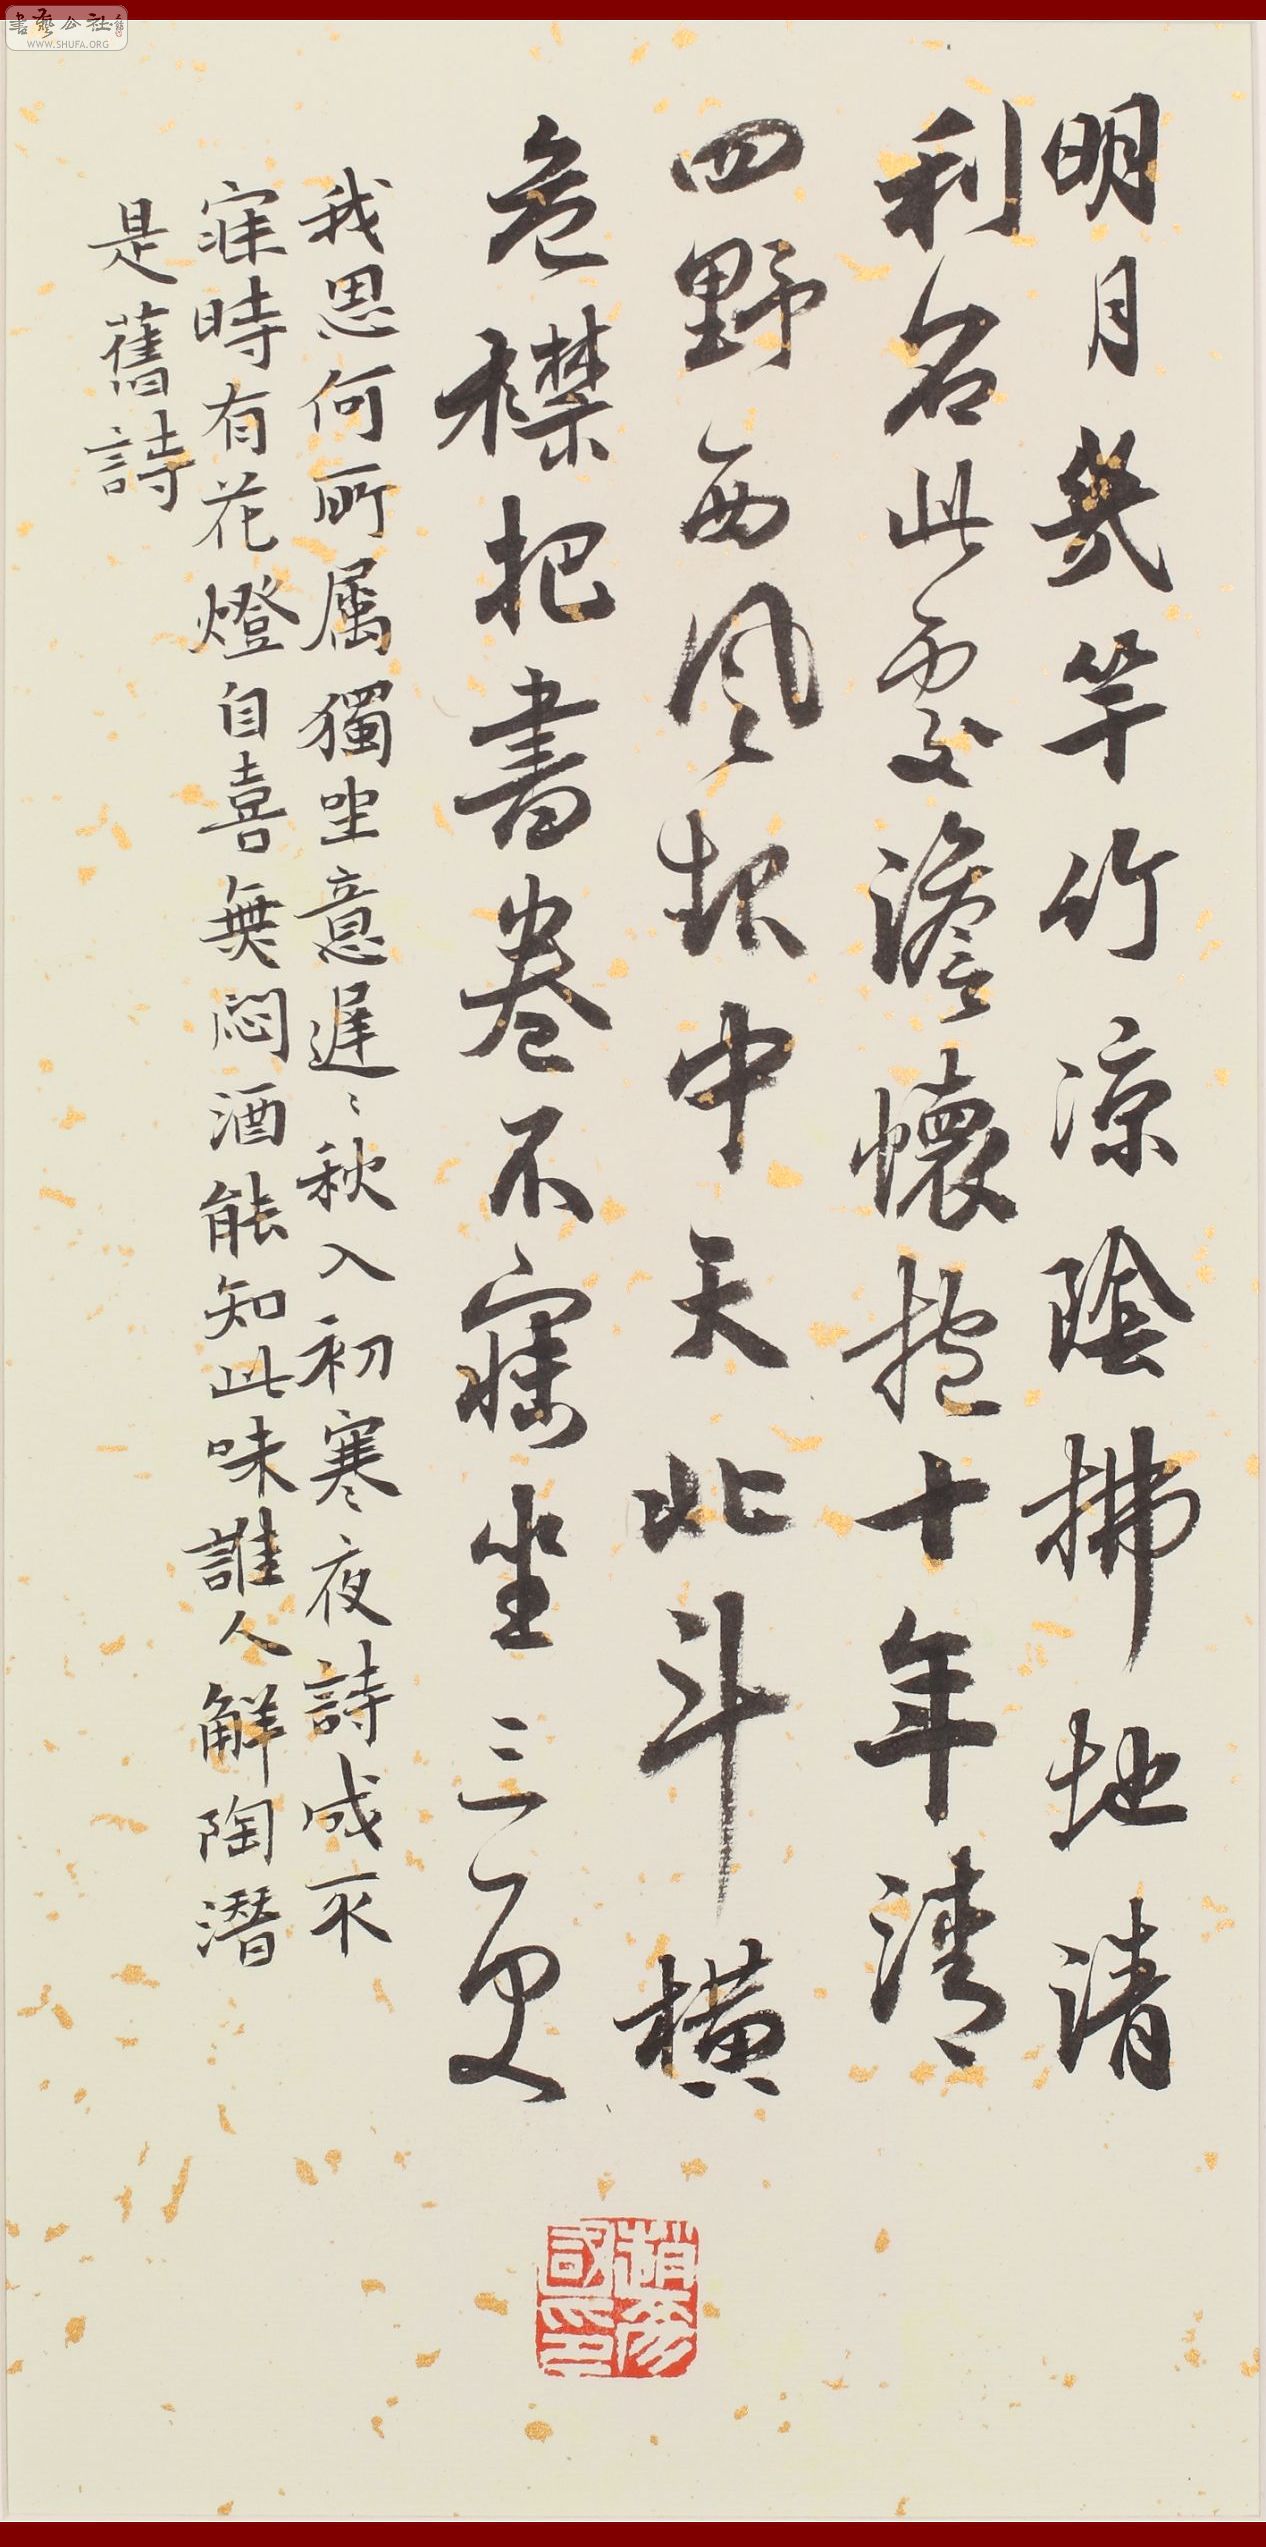 明月幾竿竹涼陰拂地清
利名此處澹懷抱十年清
四野西風起中天北斗橫
危襟把書卷不寐坐三更
我思何所屬獨坐意遲〻秋入初寒夜詩成不
寐時有花燈自喜無悶酒能知此味誰人解陶潛
是舊詩
書藝公社
WWW.SHUFA.ORG